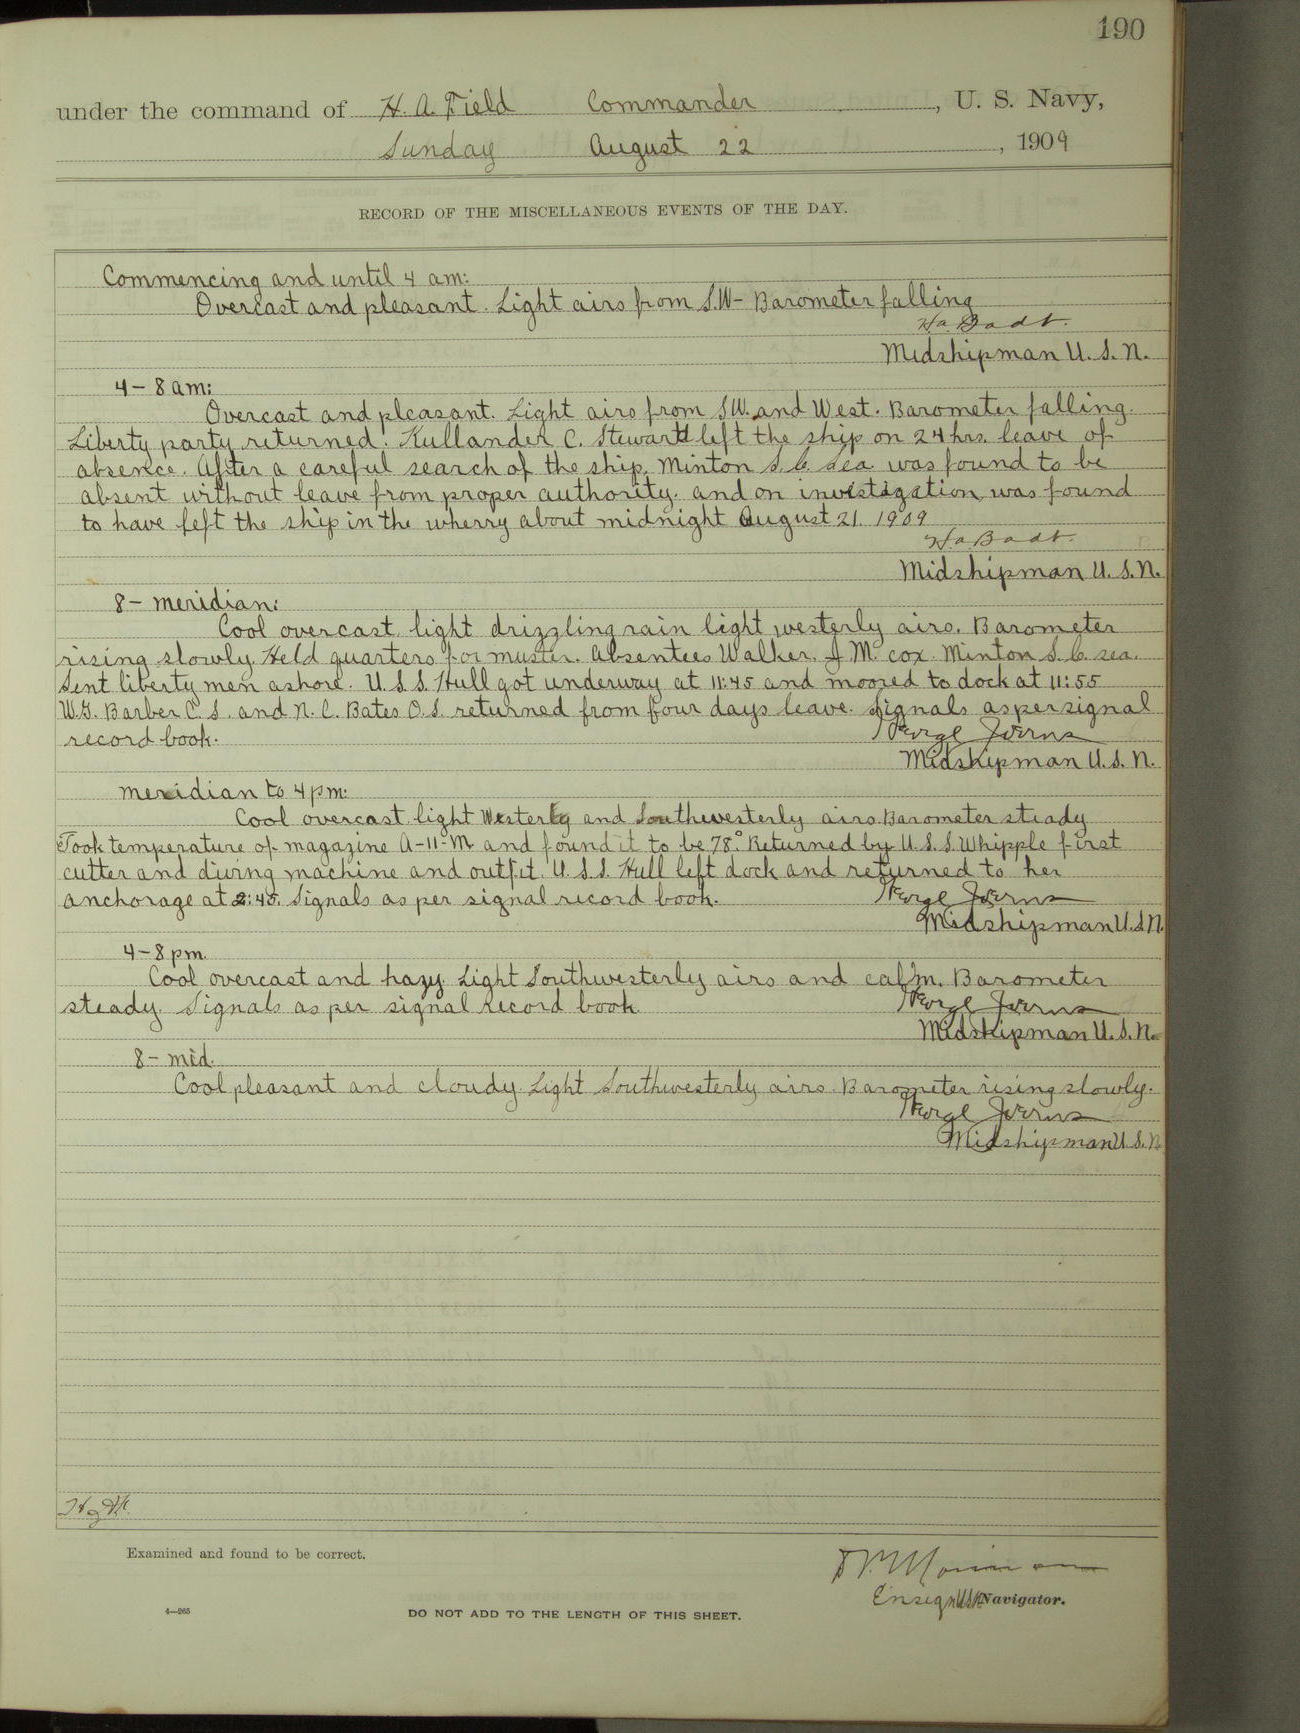 190
under the command of H. A. Field Commander, U. S. Navy,
Sunday August 22, 1909
RECORD OF THE MISCELLANEOUS EVENTS OF THE DAY.
Commencing and until 4 am:
Overcast and pleasant. Light airs from S.W- Barometer falling
H.a. Badt.
Midshipman U. S. N.
4-8 am:
Overcast and pleasant. Light airs from S.W. and West. Barometer falling.
Liberty party returned. Kullander C. Steward left the ship on 24 hrs. leave of
absence. After a careful search of the ship, Minton S. C. Sea was found to be
absent without leave from proper authority. and on investigation was found
to have left the ship in the wherry about midnight August 21. 1909
H.a. Badt.
Midshipman U. S. N.
8- meridian:
Cool overcast, light drizzling rain light westerly airs. Barometer
rising slowly. Held quarters for muster. Absentees Walker, J. M. cox. Minton S. C. sea.
Sent liberty men ashore. U.S.S. Hull got underway at 11:45 and moored to dock at 11:55
W.G. Barber C. S. and N. C. Bates O.S. returned from four days leave. Signals as per signal
record book.
George Joerns
Midshipman U. S. N.
meridian to 4 pm:
Cool overcast light Westerly and Southwesterly airs. Barometer steady
Took temperature of magazine A-11-M and found it to be 78°. Returned by U.S.S. Whipple first
cutter and diving machine and outfit. U.S.S. Hull left dock and returned to her
anchorage at 2:45. Signals as per signal record book.
George Joerns
Midshipman U.S.N.
4-8 pm.
Cool overcast and hazy. Light Southwesterly airs and calm. Barometer
steady. Signals as per signal record book.
George Joerns
Midshipman U. S. N.
8- mid.
Cool pleasant and cloudy. Light Southwesterly airs. Barometer rising slowly.
George Joerns
Midshipman U. S. N.
Examined and found to be correct.
Ensign USN Navigator.
4-265
DO NOT ADD TO THE LENGTH OF THIS SHEET.